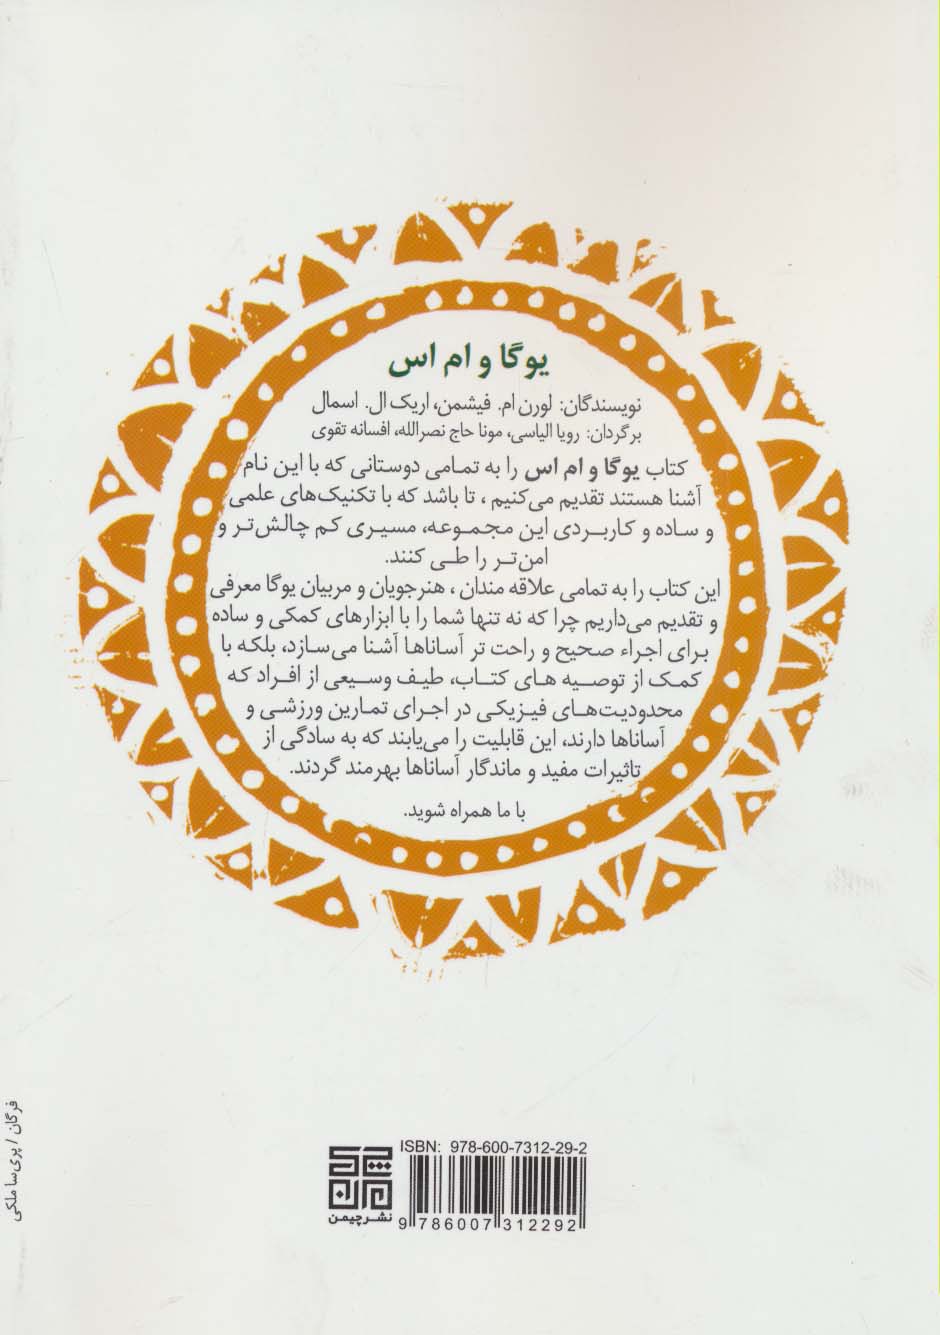 یوگا و ام اس
نویسندگان: لورن ام. فیشمن، اریک ال. اسمال
برگردان: رویا الیاسی، مونا حاج نصرالله، افسانه تقوی
کتاب یوگا و ام اس را به تمامی دوستانی که با این نام
آشنا هستند تقدیم می‌کنیم ، تا باشد که با تکنیک‌های علمی
و ساده و کاربردی این مجموعه، مسیری کم چالش‌تر و
امن‌تر را طی کنند.
این کتاب را به تمامی علاقه مندان ، هنرجویان و مربیان یوگا معرفی
و تقدیم می‌داریم چرا که نه تنها شما را با ابزارهای کمکی و ساده
برای اجراء صحیح و راحت تر آساناها آشنا می‌سازد، بلکه با
کمک از توصیه های کتاب، طیف وسیعی از افراد که
محدودیت‌های فیزیکی در اجرای تمارین ورزشی و
آساناها دارند، این قابلیت را می‌یابند که به سادگی از
تاثیرات مفید و ماندگار آساناها بهرمند گردند.
با ما همراه شوید.
فرگان / پری‌سا ملکی
ISBN: 978-600-7312-29-2
9 786007 312292
چیمن
نشرچیمن